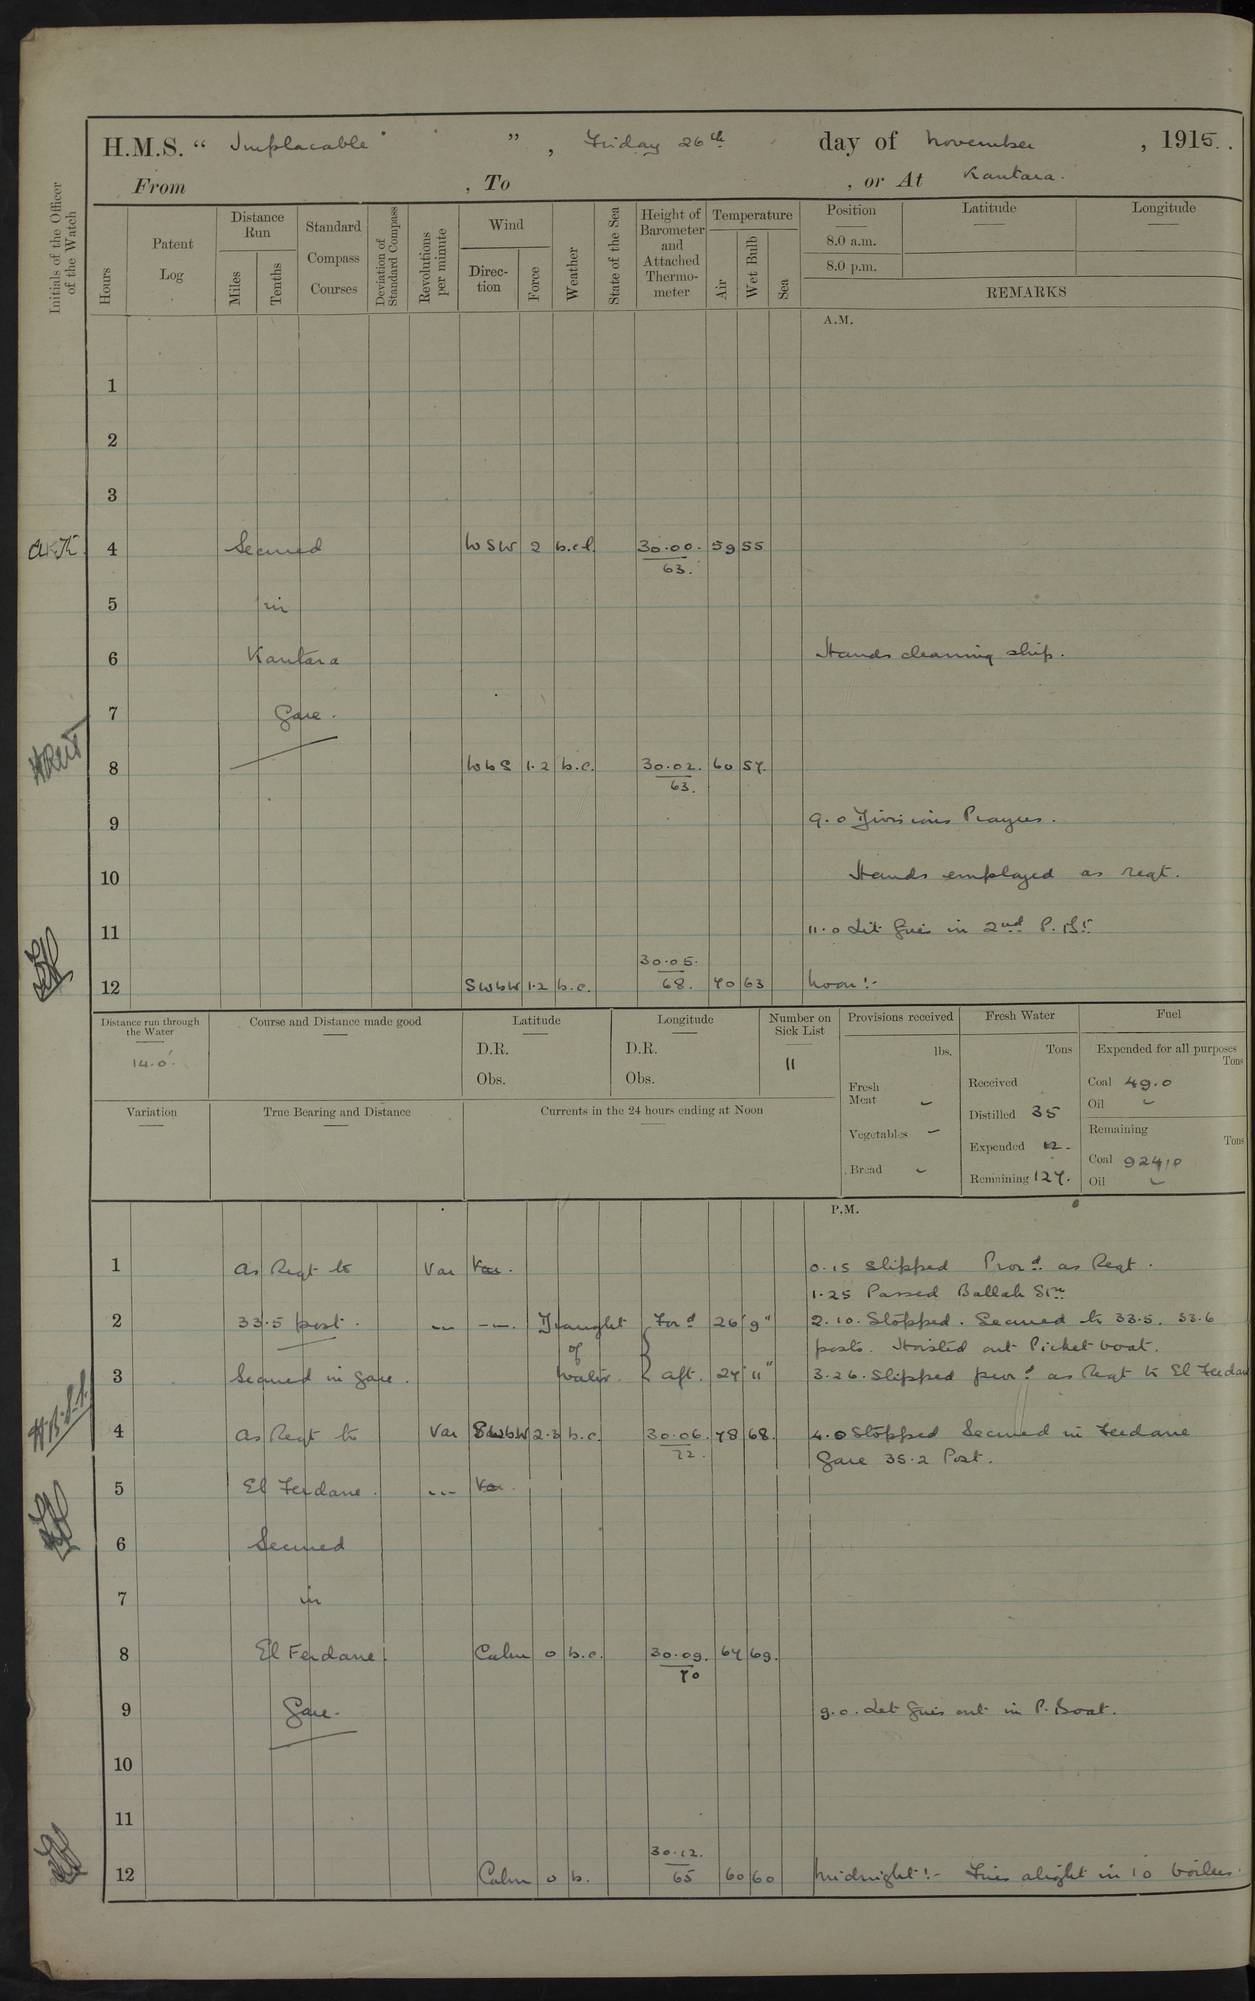 H.M.S. “ Implacable ” , Friday 26th day of November , 1915.
From , To , or At Kantara.
Initials of the Officer of the Watch
Hours
Patent Log
Distance Run
Miles
Tenths
Standard Compass Courses
Deviation of Standard Compass
Revolutions per minute
Wind
Direction
Force
Weather
State of the Sea
Height of Barometer and Attached Thermometer
Temperature
Air
Wet Bulb
Sea
Position
Latitude
Longitude
8.0 a.m.
8.0 p.m.
REMARKS
A.M.
1
2
3
4 Secured WSW 2 b.c.l. 30.00. 59 55
63.
5 in
6 Kantara Hands cleaning ship.
7 Gare.
8 WbS 1.2 b.c. 30.02. 60 57.
63.
9 9.0 Divisions Prayers.
10 Hands employed as reqt.
11 11.0 Lit fires in 2nd P. Bt
30.05.
12 SWbW 1.2 b.c. 68. 70 63 Noon:-
Distance run through the Water
14.0'.
Course and Distance made good
Latitude
D.R.
Obs.
Longitude
D.R.
Obs.
Number on Sick List
11
Variation
True Bearing and Distance
Currents in the 24 hours ending at Noon
Provisions received
lbs.
Fresh Meat –
Vegetables –
Bread –
Fresh Water
Tons
Received
Distilled 35
Expended 12.
Remaining 127.
Fuel
Expended for all purposes
Tons
Coal 49.0
Oil –
Remaining
Tons
Coal 924.0
Oil –
P.M.
1 As Reqt to Var Var. 0.15 Slipped Procd. as Reqt.
1.25 Passed Ballah Stn
2 33.5 post. Draught Ford 26 9" 2.10. Stopped. Secured to 33.5. 33.6
of posts. Hoisted out Picket boat.
3 Secured in Gare. water. aft. 27 11" 3.26. Slipped procd. as Reqt to El Ferdan
4 As Reqt to Var SWbW 2.3 b.c. 30.06. 78 68. 4.0 Stopped Secured in Ferdane
72. Gare 35.2 Post.
5 El Ferdane. Var.
6 Secured
7 in
8 El Ferdane Calm 0 b.c. 30.09. 67 69.
70
9 Gare. 9.0. Let fires out in P. Boat.
10
11
30.12.
12 Calm 0 b. 65 60 60 Midnight:- Fires alight in 10 boilers.